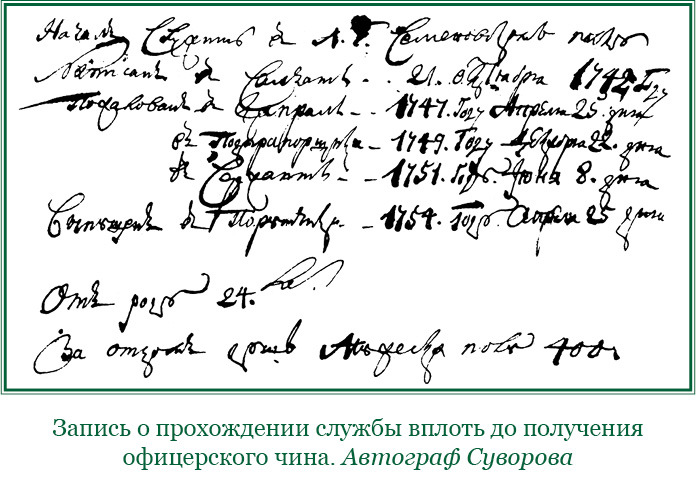 Начал Служить в Л. Г. Семеновском полку
Написан в Салдаты - - 21. Октября 1742 Году
Пожалован в Капралы - - 1747. Году Апреля 25. дня
в Подпрапорщики - 1749. Году 22. дня
в Сержанты - - 1751. Году. Июня 8. дня
в Порутчики - - 1754. Году. Апреля 25 дня
От роду 24.
За отцом душ мужеска полу 400
Запись о прохождении службы вплоть до получения
офицерского чина. Автограф Суворова